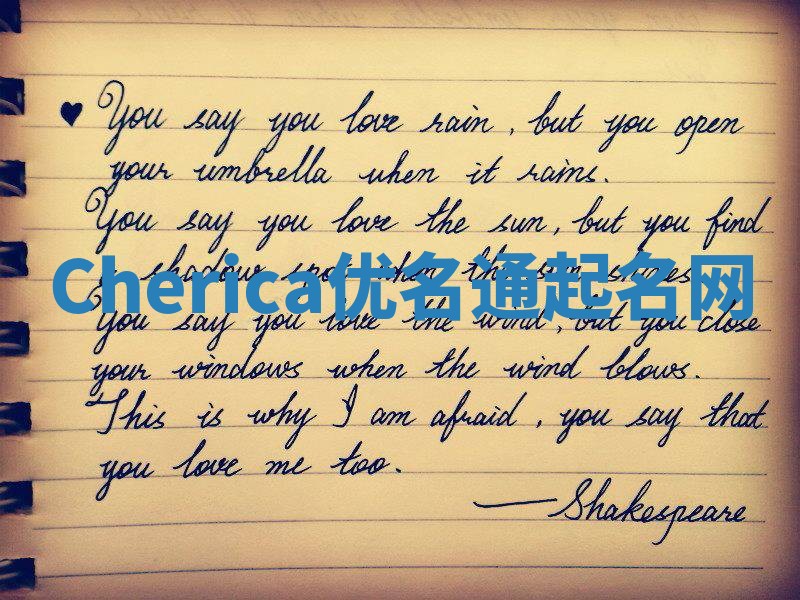 You say you love rain, but you open
your umbrella when it rains.
You say you love the sun, but you find
a shadow spot when the sun shines.
Cherica优名通起名网
You say you love the wind, but you close
your windows when the wind blows.
This is why I am afraid, you say that
you love me too.
—Shakespeare